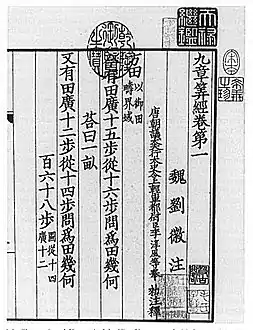 九章筭經卷第一
魏劉徽注
唐朝議大夫行太史令上輕車都尉臣李淳風等奉勑注釋
方田以御田疇界域
今有田廣十五步從十六步問爲田幾何
荅曰一畝
又有田廣十二步從十四步問爲田幾何
百六十八步圖從十四廣十二
天祿繼鑑
乾隆御覽之寶